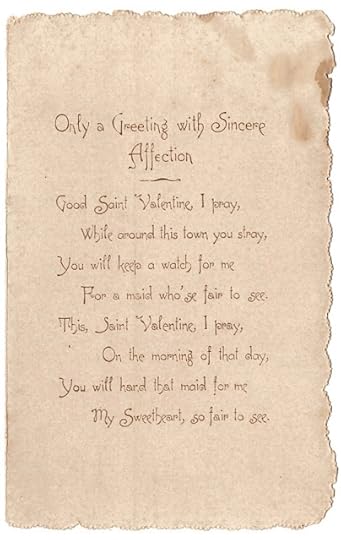 Only a Greeting with Sincere
Affection
Good Saint Valentine, I pray,
While around this town you stray,
You will keep a watch for me
For a maid who'se fair to see.
This, Saint Valentine, I pray,
On the morning of that day,
You will hand that maid for me
My Sweetheart, so fair to see.